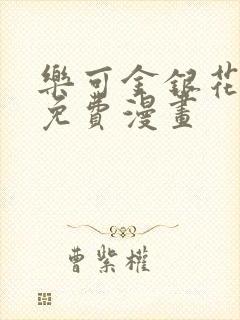 樂可金銀花
免費漫畫
曹紫權